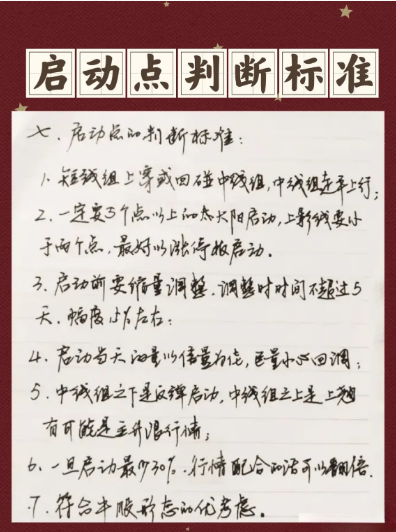 启动点判断标准
七、启动点的判断标准：
1、短线组上穿或回碰中线组，中线组走平上行；
2、一定要3个点以上的大阳启动，上影线要小
于两个点，最好以涨停板启动。
3、启动前要缩量调整，调整时时间不超过5
天，幅度15%左右；
4、启动当天的量以倍量为佳，巨量小心回调；
5、中线组之下是反弹启动，中线组之上是上翘
有可能是主升浪行情；
6、一旦启动最少30%，行情配合的话可以翻倍
7、符合牛股形态的优考虑。